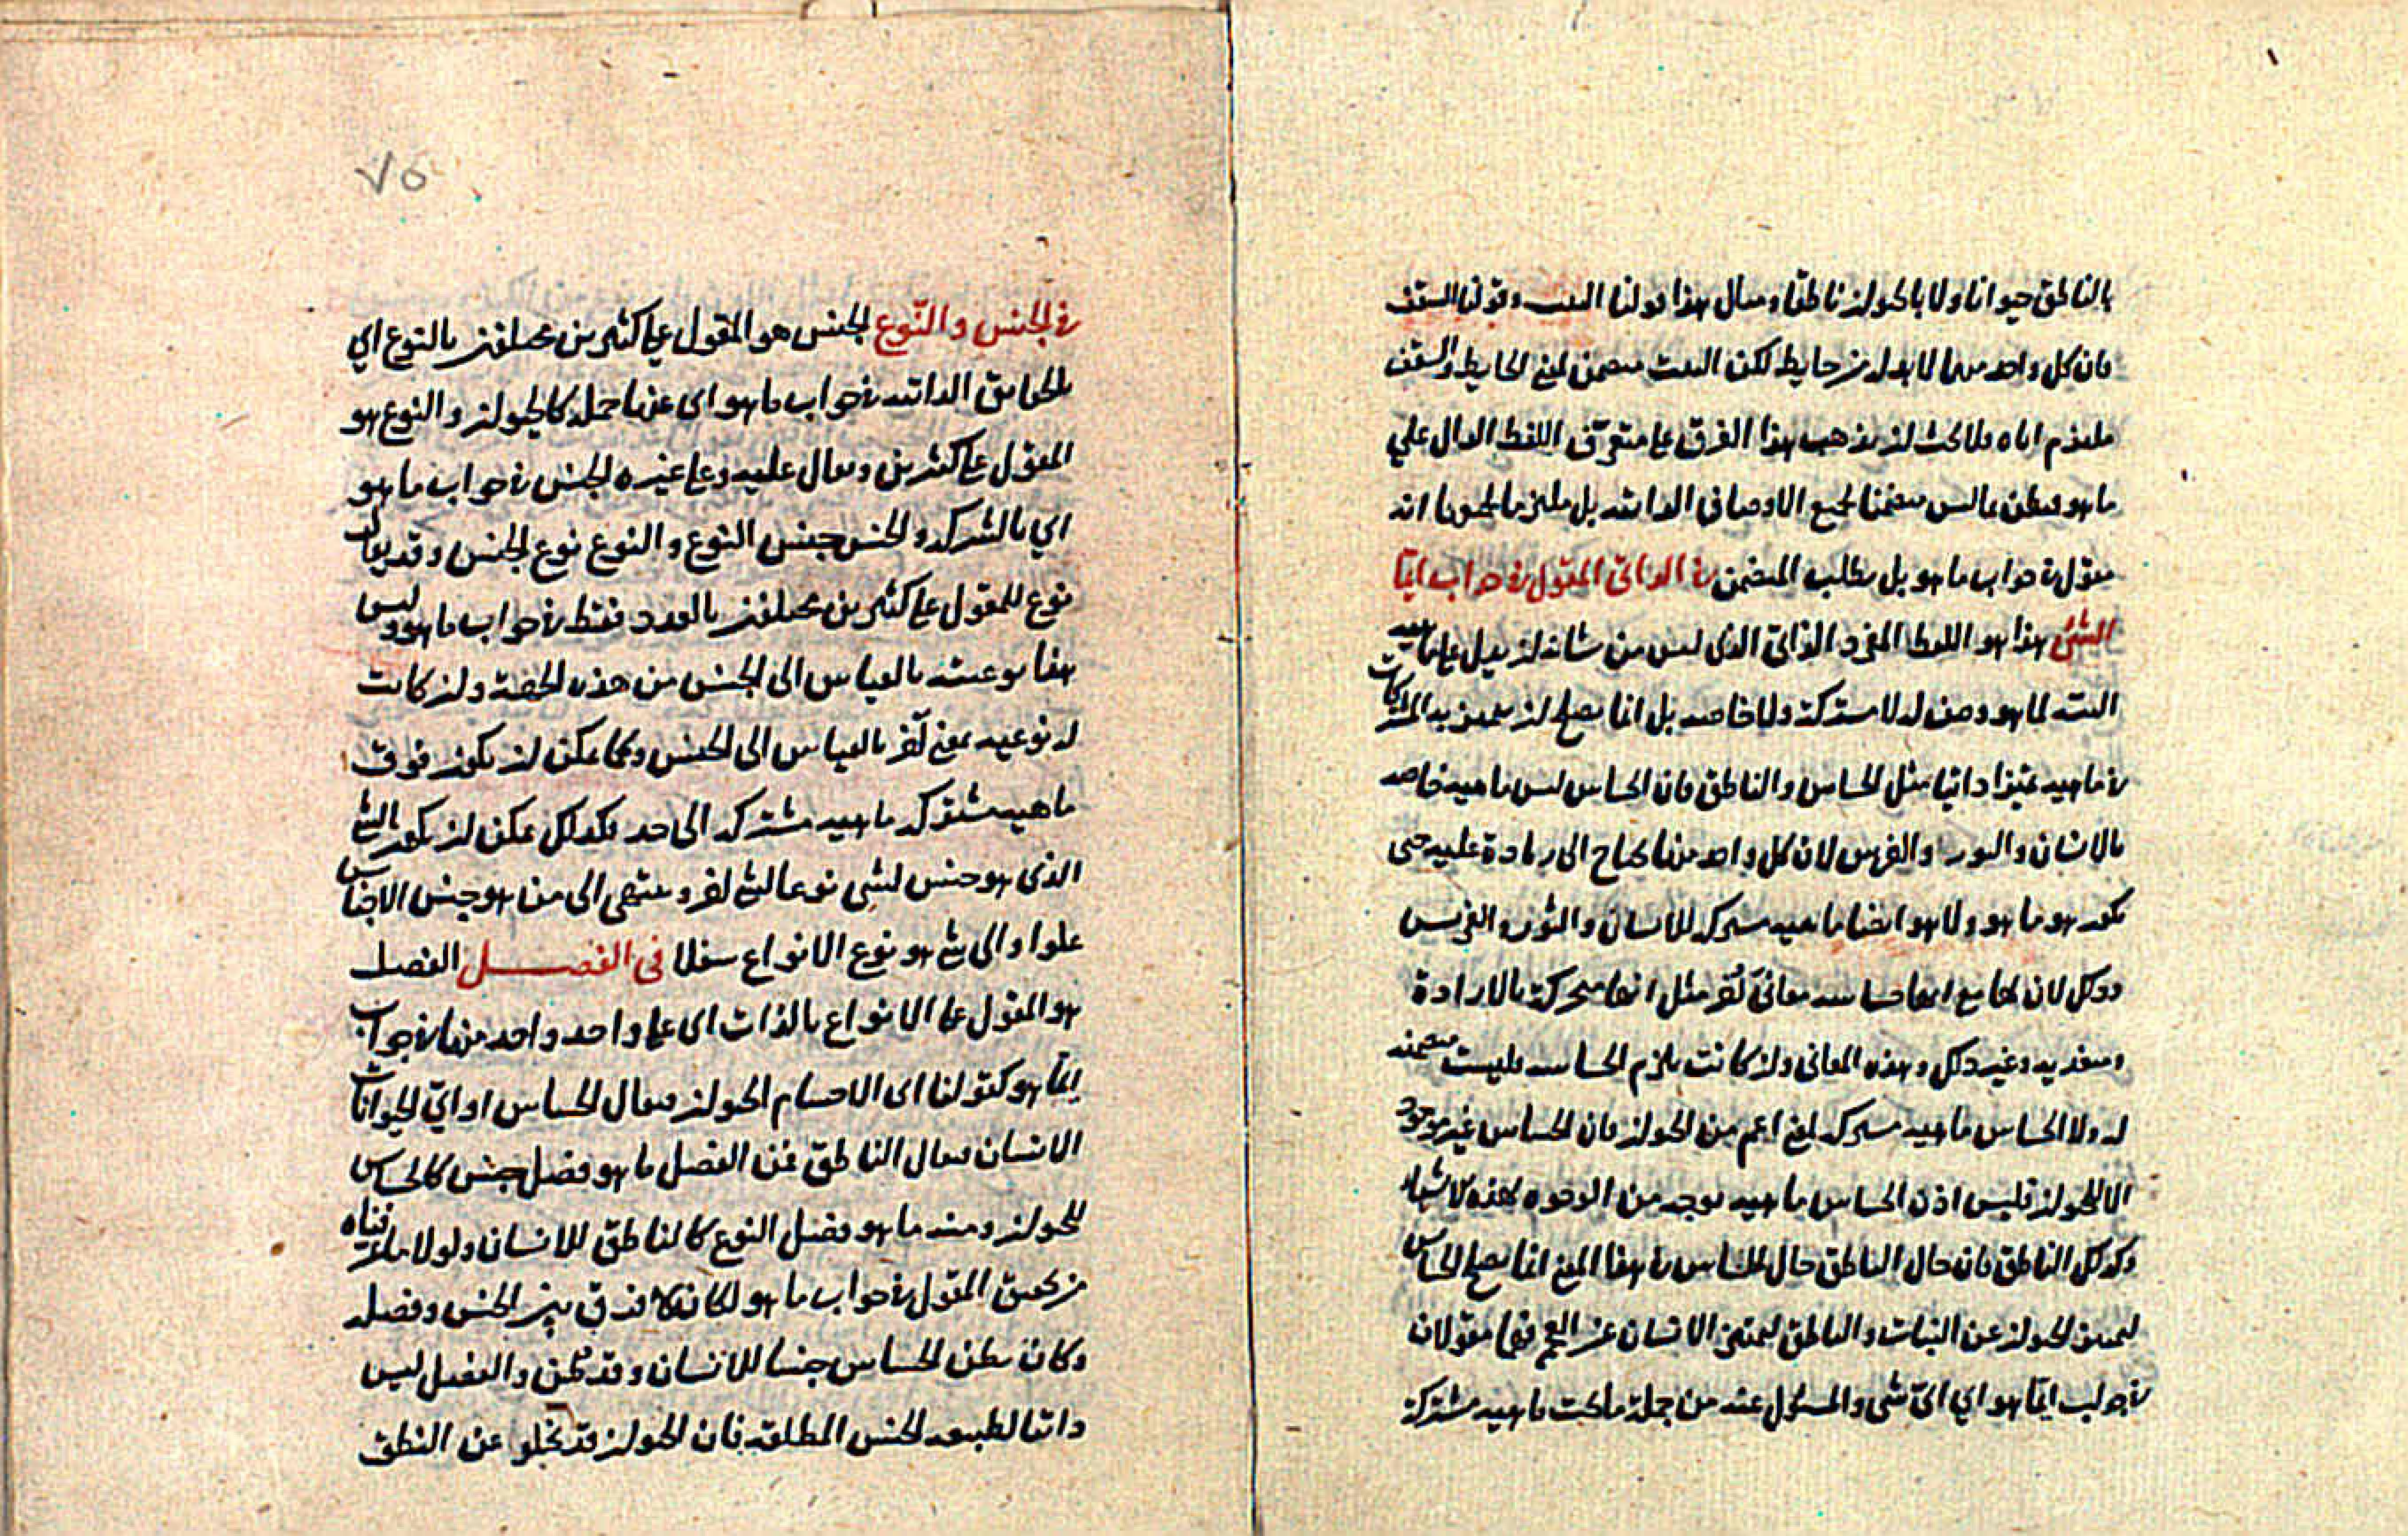 بالناطق حيوانا ولا بالحيوان ناطقا ومثال هذا قولنا البيت وقولنا السقف
فان كل واحد منهما لابد له من حايط لكن البيت متضمن لمعنى الحايط والسقف
ملتزم اياه فلا يجب ان يذهب هذا الفرق على متعرّف اللفظ الدال علي
ما هو فيظن ما ليس متضمنا لجميع الاوصاف الذاتيه بل ملتزما لجميعها انه
مقول في جواب ما هو بل يطلب المتضمن في الذاتي المقول في جواب ايّما
الشئ هذا هو اللفظ المفرد الذاتي الذي ليس من شانه ان يدل على ماهيه
البته لما هو وصف له لا مشتركة ولا خاصه بل انما يصلح لان يميز به المشتركات
في ماهيه تميزا ذاتيا مثل الحساس والناطق فان الحساس ليس ماهيه خاصه
بالانسان والثور والفرس لان كل واحد منها يحتاج الى زيادة عليه حتى
يكون هو ما هو ولا هو ايضا ماهيه مشتركه للانسان والثور والفرس
وذلك لان لها مع انها حساسه معاني أُخر مثل انها متحركة بالارادة
ومتغذيه وغير ذلك وهذه المعاني وان كانت تلزم الحساسه فليست متضمنه
له ولا الحساس ماهيه مشتركه لمعنى اعم من الحيوان فان الحساس غير موجود
الا للحيوان فليس اذن الحساس ماهيه بوجه من الوجوه لهذه الاشياء
وكذلك الناطق فان حال الناطق حال الحساس في هذا المعنى انما يصلح الحساس
ليميز الحيوان عن النبات والناطق ليميز الانسان عن العجم فهما مقولان
في جواب ايّما هو اي ايّ شي والمسئول عنه من جملة ما تحت ماهيه مشتركة
٧٥
في الجنس والنّوع الجنس هو المقول على كثيرين مختلفين بالنوع اي
بالحقايق الذاتيه في جواب ما هو اى عن ما حمله كالحيوان والنوع هو
المقول على كثيرين ويقال عليه وعلى غيره الجنس في جواب ما هو
اي بالشركه والجنس جنس النوع والنوع نوع الجنس وقد يقال
نوع للمقول على كثيرين مختلفين بالعدد فقط في جواب ما هو وليس
هذا نوعيته بالقياس الى الجنس من هذه الحصة وان كانت
له نوعيه بمعنى آخر بالقياس الى الجنس وكما يمكن ان يكون فوق
ماهيه مشتركه ماهيه مشتركه الى حد فكذلك يمكن ان يكون الشئ
الذى هو جنس لشي نوعا لشئ اخر وينتهى الى من هو جنس الاجناس
علوا والى شئ هو نوع الانواع سفلا فى الفصل الفصل
هو المقول على الانواع بالذات اى على واحد واحد منها في جواب
ايّما هو كقولنا اى الاجسام الحيوان فيقال الحساس او ايّ الحيوانات
الانسان فيقال الناطق فمن الفصل ما هو فصل جنس كالحساس
للحيوان ومنه ما هو فصل النوع كالناطق للانسان ولولا ما عرفناه
من تحقيق المقول في جواب ما هو لكان لا فرق بين الجنس وفصله
وكان يظن الحساس جنسا للانسان وقد ظُن والفصل ليس
ذاتيا لطبيعه الجنس المطلقه فان الحيوان قد يخلو عن النطق